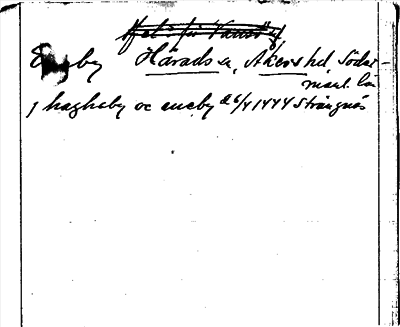 by Härads sn, Åkers hd, Söder-
manl. län
j hagheby oc aneby 26/4 1444 Strängnäs